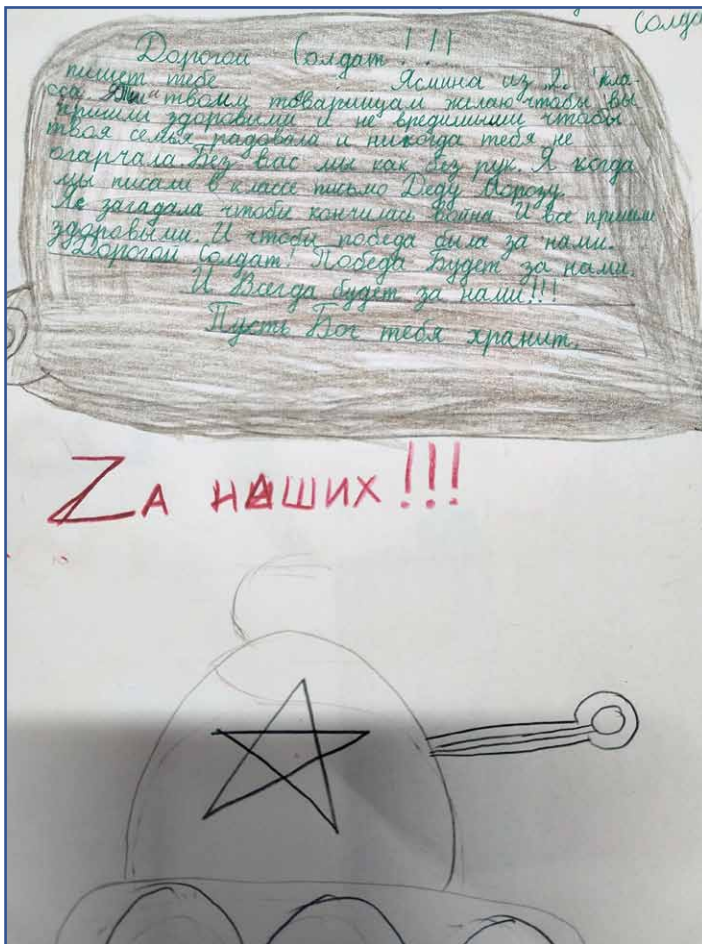 Солда
Дорогой Солдат!!!
пишет тебе Ясмина из 2 кла-
сса. и твоим товарищам желаю чтобы вы
пришли здоровыми и не вредимыми чтобы
твоя семья радовала и никогда тебя не
огарчала. Без вас мы как без рук. Я когда
мы писали в классе письмо Деду Морозу.
загадала чтобы кончилась война. И все пришли
здоровыми. И чтобы победа была за нами.
Дорогой Солдат! Победа Будет за нами.
И Всегда будет за нами!!!
Пусть Бог тебя хранит.
Zа наших!!!